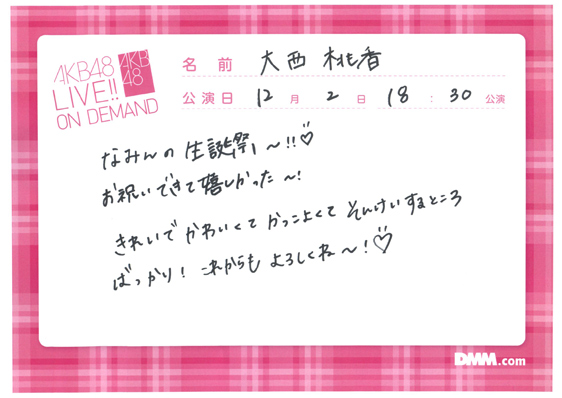 AKB48
LIVE!!
ON DEMAND
AKB
48
名前 大西 桃香
公演日 12月2日 18:30公演
なみんの 生誕祭〜!!♡
お祝いできて嬉しかった〜!
きれいで かわいくて かっこよくて そんけいするところ
ばっかり! これからも よろしくね〜!♡
DMM.com